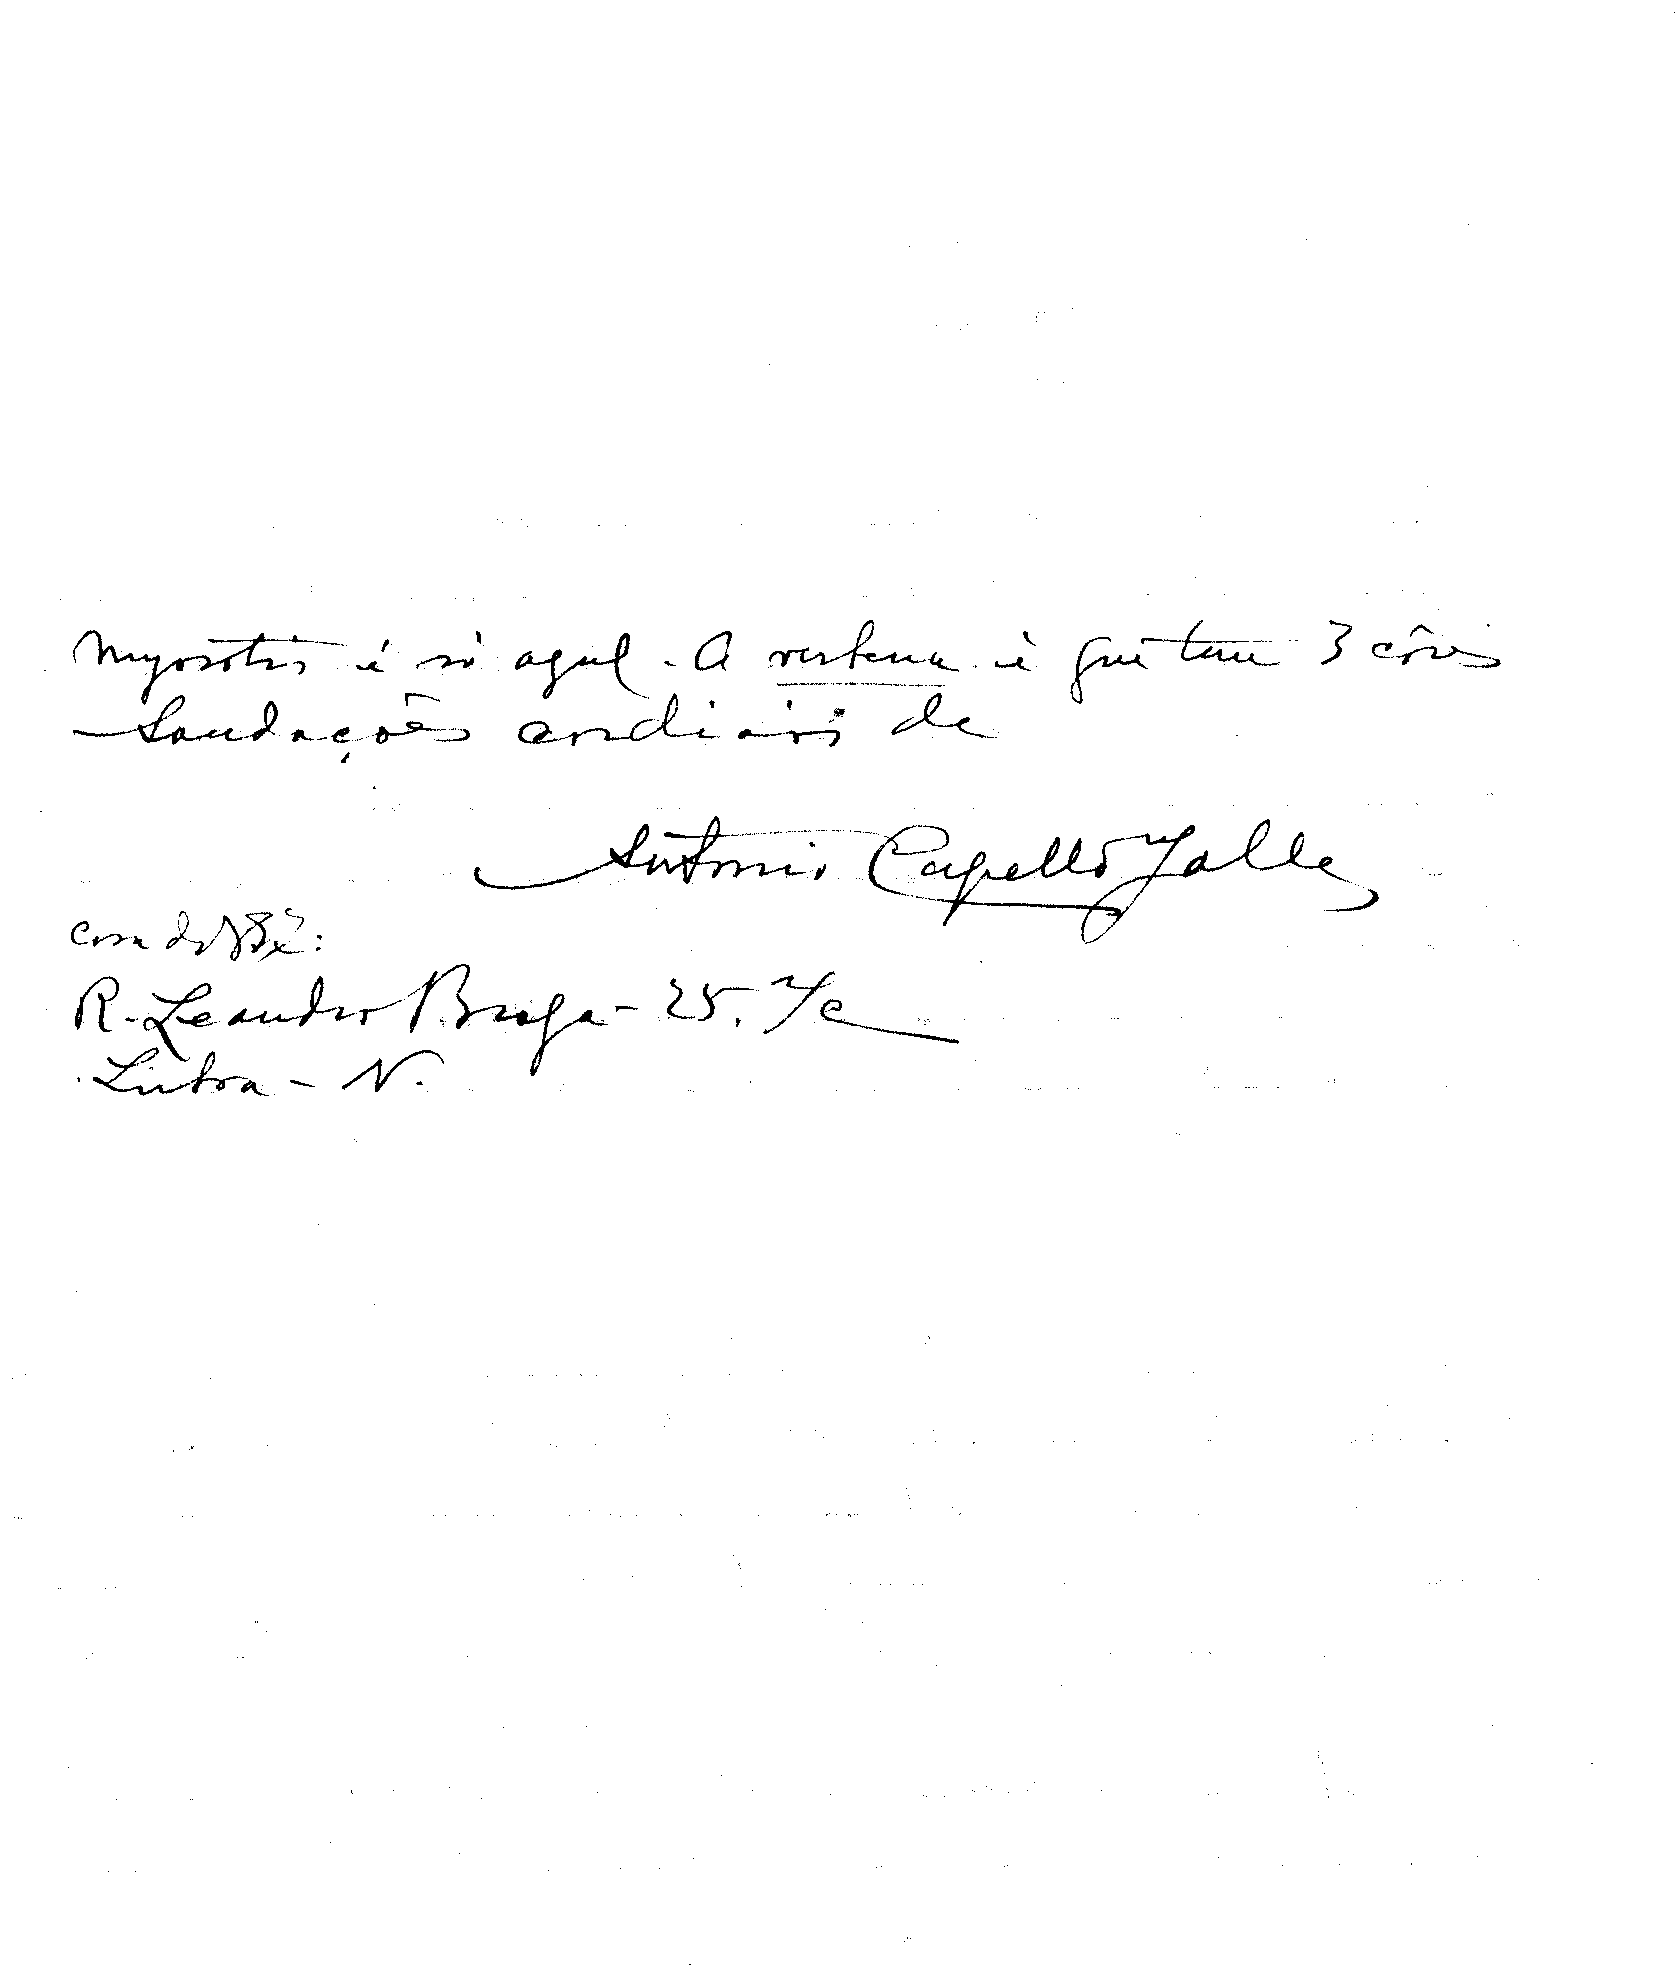 Myosotis é só azul. A verbena é que tem 3 côres
Saudações cordiais de
Antonio Capello
R. Leandro Braga - 25. r/c
Lisboa - N.